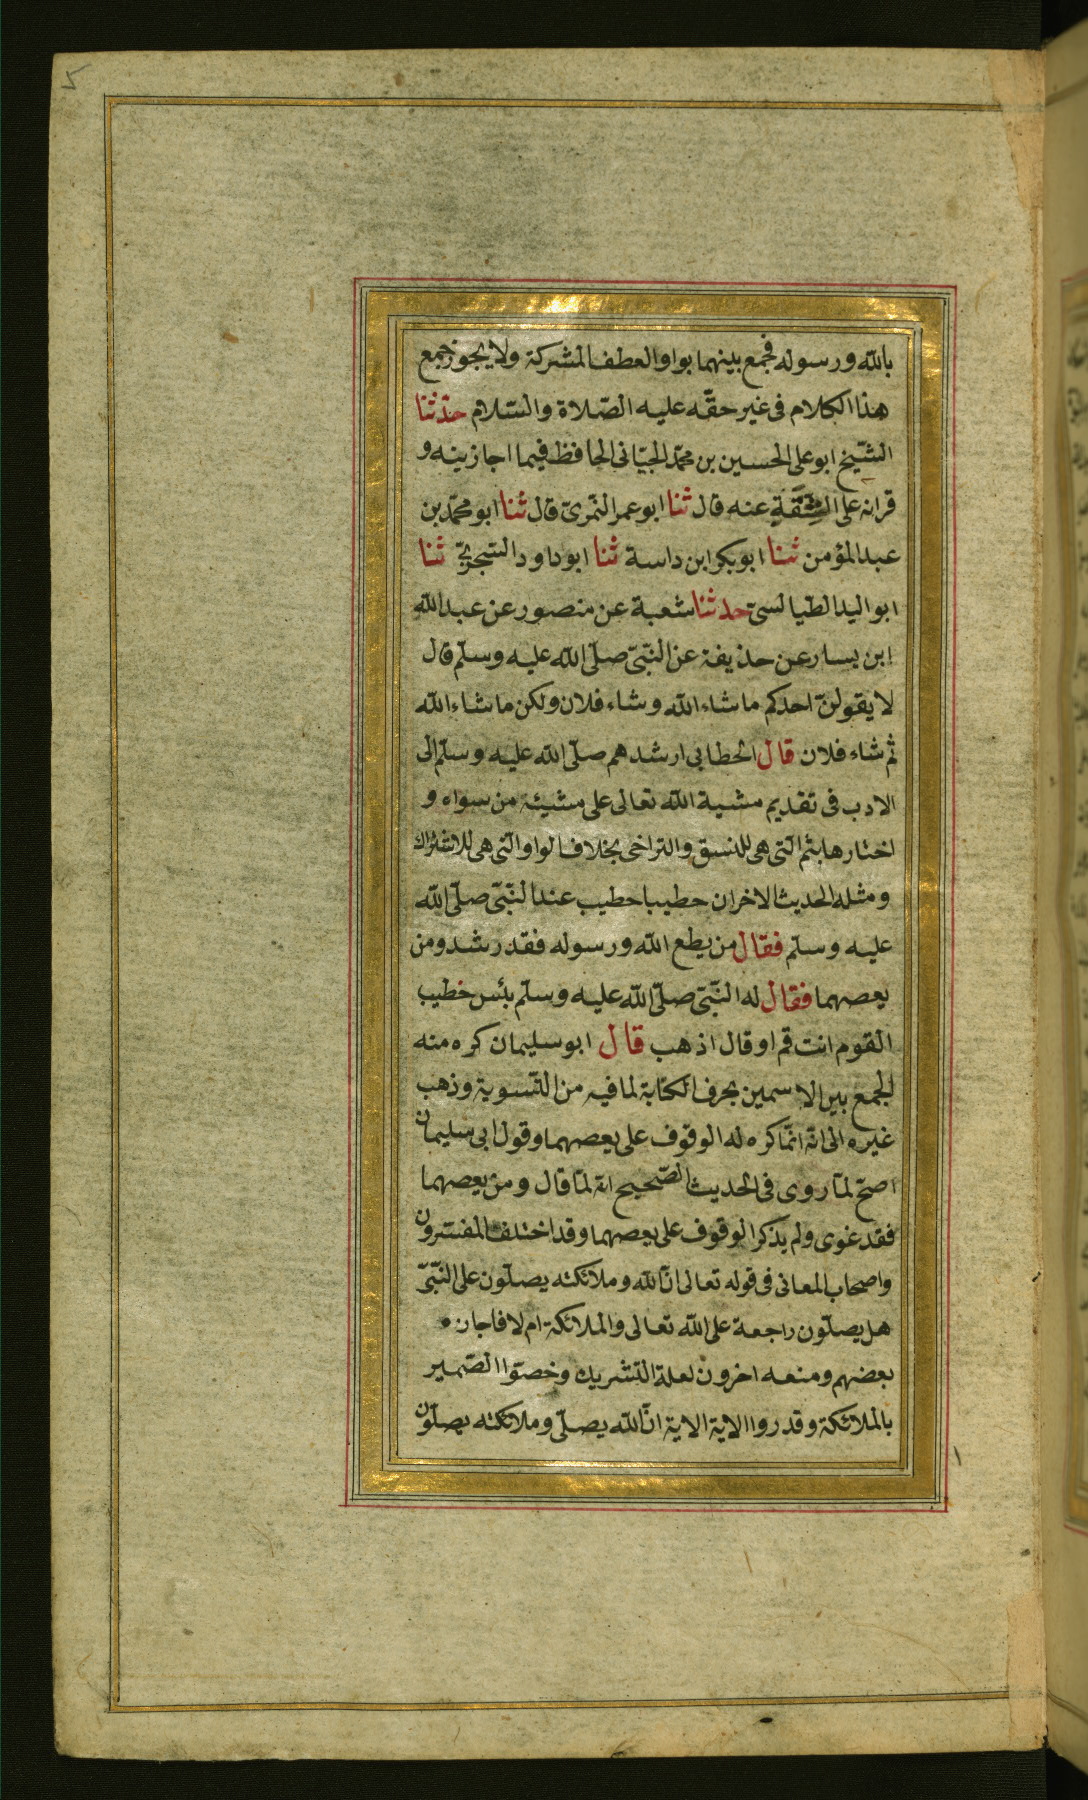 بالله ورسوله فجمع بينهما بواو العطف المشركة ولا يجوز جمع
هذا الكلام فى غير حقّه عليه الصّلاة والسّلام حدّثنا
الشّيخ ابو على الحسين بن محمّد الجيّانى الحافظ فيما اجازينه و
قراته على الثِّقَةِ عنه قال ثنا ابو عمر النّمرىّ قال ثنا ابو محمّد بن
عبد المؤمن ثنا ابو بكر ابن داسة ثنا ابو داود السّجزىّ ثنا
ابو اليد الطّيالسىّ حدثنا شعبة عن منصور عن عبد الله
ابن يسار عن حذيفة عن النّبىّ صلّى الله عليه وسلّم قال
لا يقولنّ احدكم ما شاء الله وشاء فلان ولكن ما شاء الله
ثم شاء فلان قال الخطابى ارشدهم صلّى الله عليه وسلّم الى
الادب فى تقديم مشية الله تعالى على مشيئة من سواه و
اختارها بثم التى هى للنسق والتراخى بخلاف الواو التى هى للاشتراك
ومثله الحديث الاخر ان خطيبا خطيب عند النّبىّ صلّى الله
عليه وسلّم فقال من يطع الله ورسوله فقد رشد ومن
يعصهما فقال له النّبىّ صلّى الله عليه وسلّم بئس خطيب
القوم انت قم او قال اذهب قال ابو سليمان كره منه
الجمع بين الاسمين بحرف الكناية لما فيه من التّسوية وذهب
غيره الى انه انّما كره له الوقوف على يعصهما وقول ابى سليمان
اصحّ لمّا روى فى الحديث الصّحيح انه لمّا قال ومن يعصهما
فقد غوى ولم يذكر الوقوف على يعصهما وقد اختلف المفسّرون
واصحاب المعانى فى قوله تعالى انّ الله وملائكته يصلّون على النّبىّ
هل يصلّون راجعة على الله تعالى والملائكة ام لا فاجازه
بعضهم ومنعه اخرون لعلة التشريك وخصّوا الضّمير
بالملائكة وقدروا الاية الاية انّ الله يصلّى وملائكته يصلّون